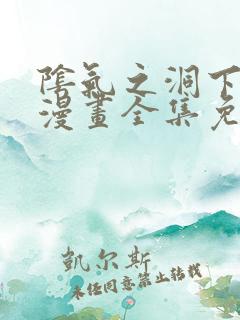 陰氣之洞下
漫畫全集免
凱尔斯
未经同意禁止转载